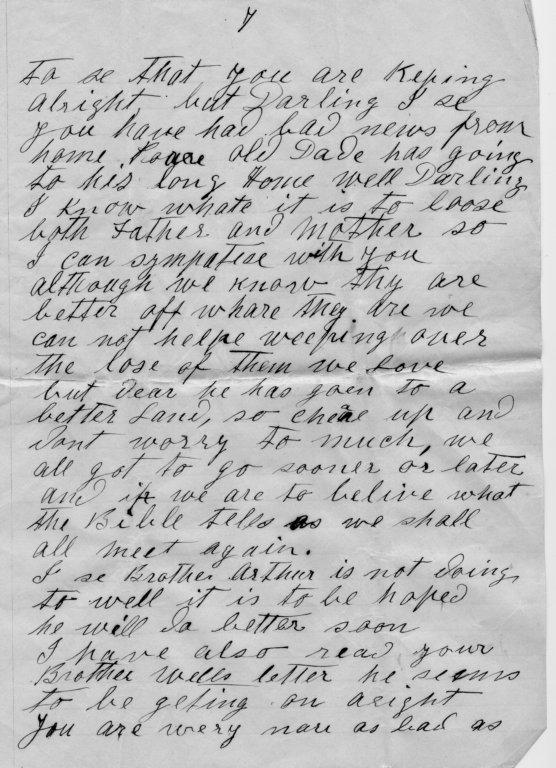 7
to se that you are Keping
alright, but Darling I se
you have had bad news from
home, Poure old Dade has going
to his long Home well Darling
I know whate it is to loose
both Father and Mother so
I can sympatise with you
although we know thy are
better off whare they are we
can not helpe weeping over
the lose of them we Love
but dear he has goen to a
better Land, so cheare up and
dont worry to much, we
all got to go sooner or later
and if we are to belive what
the Bible tells us we shall
all meet again.
I se Brother Arthur is not doing
to well it is to be hoped
he will do better soon
I have also read your
Brother Wells letter he seems
to be geting on aright
You are wery nare as bad as